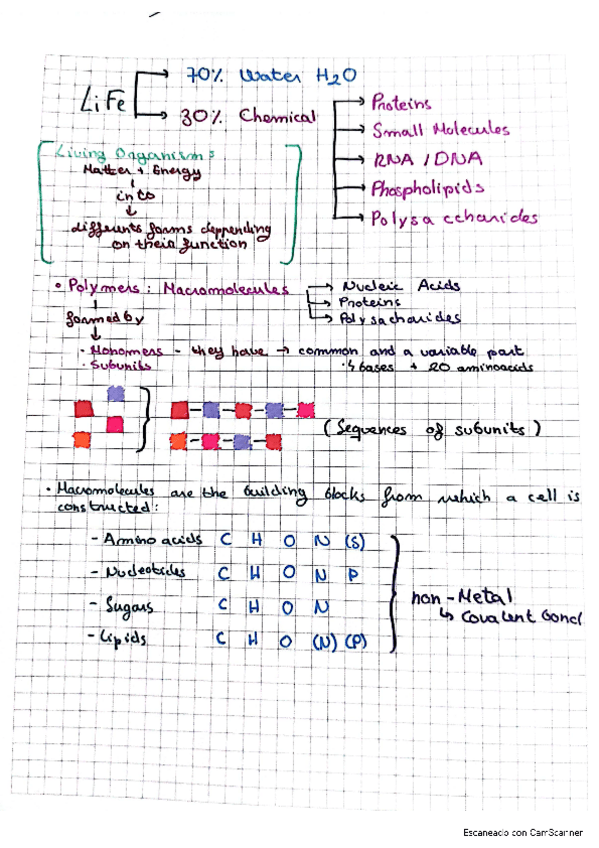 LiFe
70% Water H2O
30% Chemical
Proteins
Small Molecules
RNA / DNA
Phospholipids
Polysa ccharides
Living Organism:
Matter + Energy
into
differents forms deppending
on their function
• Polymers: Macromolecules
Nucleic Acids
Proteins
Polysacharides
formed by
• Monomers - they have → common and a variable part
• Subunits
• 4 bases + 20 aminoacids
(Sequences of subunits)
• Macromolecules are the building blocks from which a cell is
constructed:
- Amino acids C H O N (S)
- Nucleotides C H O N P
- Sugars C H O N
- Lipids C H O (N) (P)
non-Metal
↳ Covalent bond
Escaneado con CamScanner